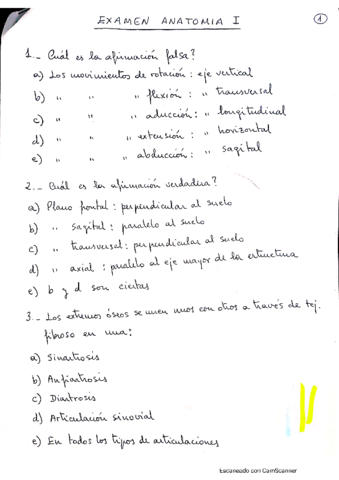 EXAMEN ANATOMIA I
1
1.- Cuál es la afirmación falsa?
a) Los movimientos de rotación : eje vertical
b) " " " flexión : " transversal
c) " " " aducción : " longitudinal
d) " " " extensión : " horizontal
e) " " " abducción : " sagital
2.- Cuál es la afirmación verdadera?
a) Plano frontal : perpendicular al suelo
b) " sagital : paralelo al suelo
c) " transversal : perpendicular al suelo
d) " axial : paralelo al eje mayor de la estructura
e) b y d son ciertas
3.- Los extremos óseos se unen unos con otros a través de tej.
fibroso en una:
a) Sinartrosis
b) Anfiartrosis
c) Diartrosis
d) Articulación sinovial
e) En todos los tipos de articulaciones
Escaneado con CamScanner